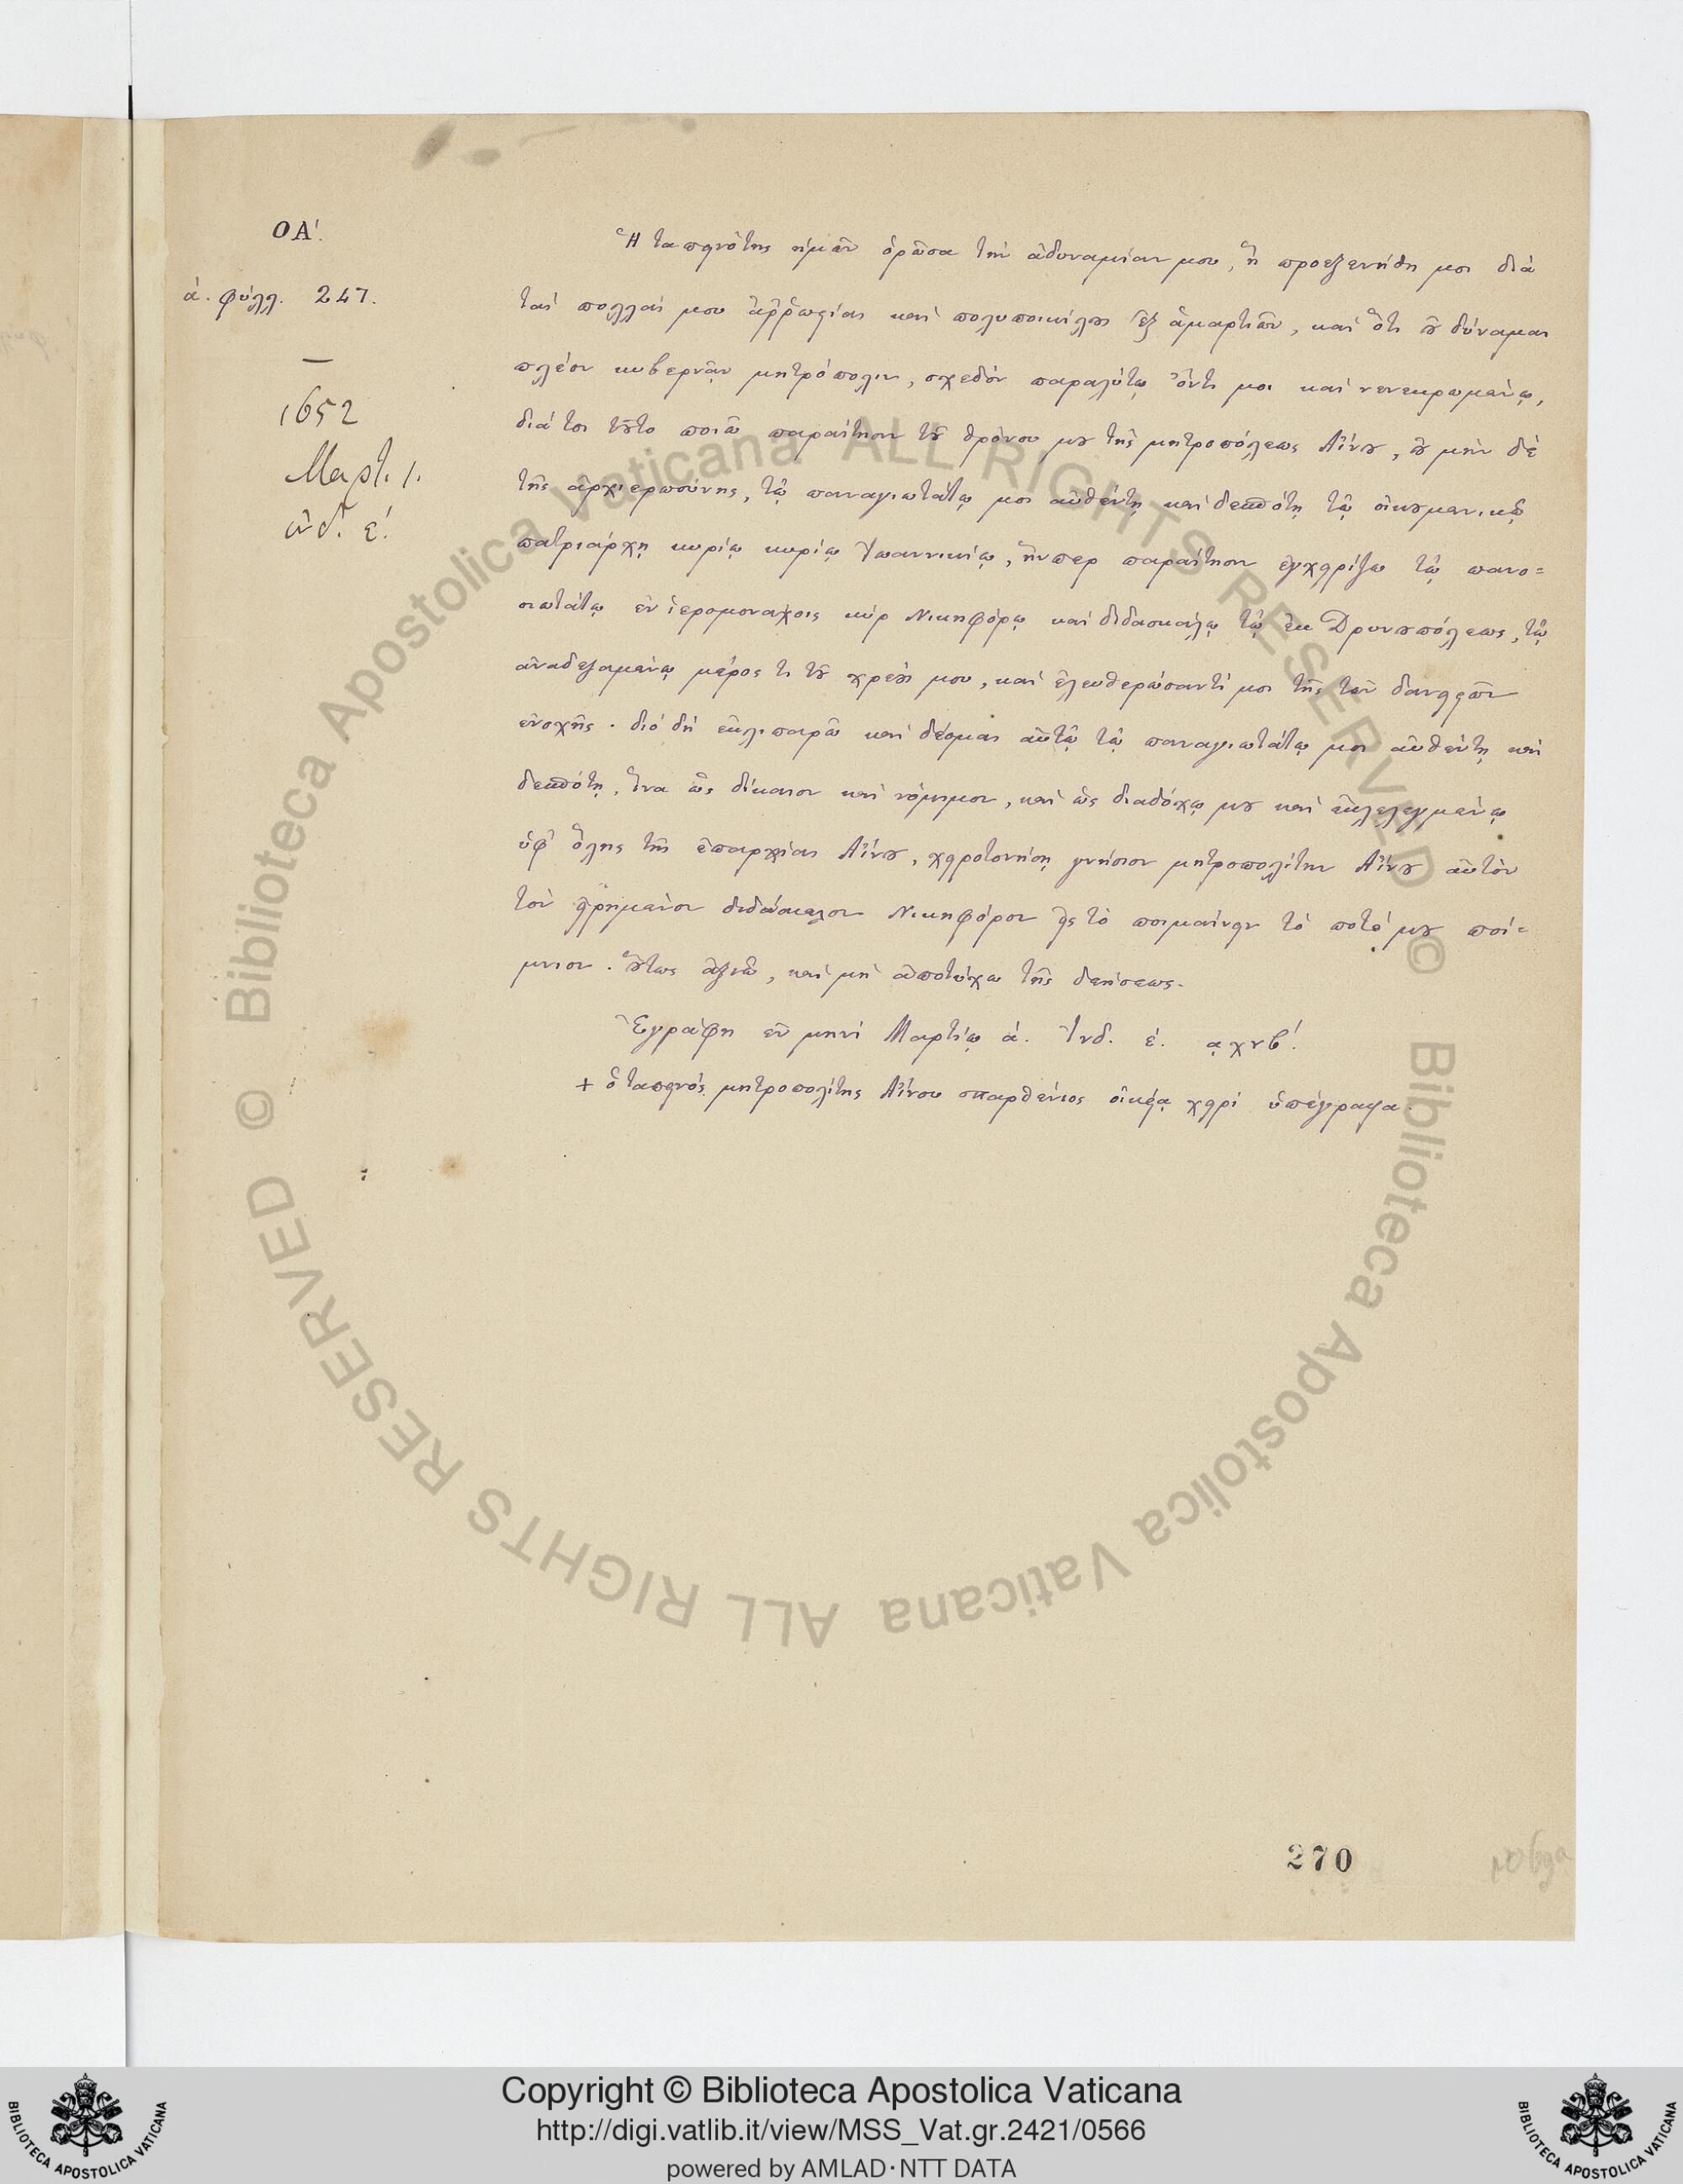 ΟΑ΄.
ἀ. φύλλ. 247.
1652
Μαρτ. 1.
ἰνδ. ε΄.
Ἡ ταπεινότης ἡμῶν ὁρῶσα τὴν ἀδυναμίαν μου, ἣ προεξενήθη μοι διὰ
τὰς πολλάς μου ἀῤῥωστίας καὶ πολυποικίλους ἐξ ἁμαρτιῶν, καὶ ὅτι οὐ δύναμαι
πλέον κυβερνᾷν μητρόπολιν, σχεδὸν παραλύτῳ ὄντι μοι καὶ νενεκρωμένῳ,
διά τοι τοῦτο ποιῶ παραίτησιν τοῦ θρόνου μου τῆς μητροπόλεως Αἴνου, οὐ μὴν δὲ
τῆς ἀρχιερωσύνης, τῷ παναγιωτάτῳ μοι αὐθέντῃ καὶ δεσπότῃ τῷ οἰκουμενικῷ
πατριάρχῃ κυρίῳ κυρίῳ Ἰωαννικίῳ, ἥνπερ παραίτησιν ἐγχειρίζω τῷ πανο=
σιωτάτῳ ἐν ἱερομονάχοις κὺρ Νικηφόρῳ καὶ διδασκάλῳ τῷ ἐκ Δρυνουπόλεως, τῷ
ἀναδεξαμένῳ μέρος τι τοῦ χρέους μου, καὶ ἐλευθερώσαντί μοι τῆς τῶν δανειστῶν
ἐνοχῆς. διὸ δὴ ἐκλιπαρῶ καὶ δέομαι αὐτῷ τῷ παναγιωτάτῳ μοι αὐθέντῃ καὶ
δεσπότῃ, ἵνα ὡς δίκαιον καὶ νόμιμον, καὶ ὡς διαδόχῳ μου καὶ ἐκλελεγμένῳ
ὑφ' ὅλης τῆς ἐπαρχίας Αἴνου, χειροτονήσῃ γνήσιον μητροπολίτην Αἴνου αὐτὸν
τὸν εἰρημένον διδάσκαλον Νικηφόρον εἰς τὸ ποιμαίνειν τὸ ποτέ μου ποί=
μνιον. οὕτως ἀξιῶ, καὶ μὴ ἀποτύχω τῆς δεήσεως.
Ἐγράφη ἐν μηνὶ Μαρτίῳ ἀ. Ἰνδ. ἐ. ͵αχνβ΄.
+ ὁ ταπεινὸς μητροπολίτης Αἴνου παρθένιος οἰκείᾳ χειρὶ ὑπέγραψα.
270
Biblioteca Apostolica Vaticana ALL RIGHTS RESERVED ©
Biblioteca Apostolica Vaticana ALL RIGHTS RESERVED ©
Copyright © Biblioteca Apostolica Vaticana
http://digi.vatlib.it/view/MSS_Vat.gr.2421/0566
powered by AMLAD·NTT DATA
BIBLIOTECA APOSTOLICA VATICANA
BIBLIOTECA APOSTOLICA VATICANA